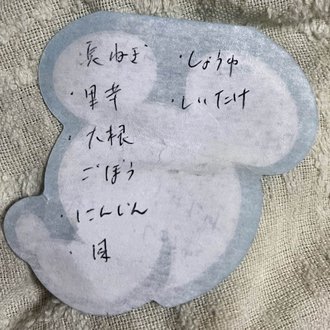 長ねぎ
・里芋
・大根
ごぼう
・にんじん
・しょうゆ
・しいたけ